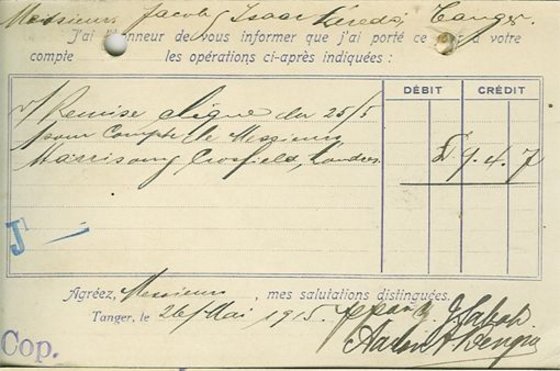 Messieurs Jacob & Isaac Laredo, Tanger.
J'ai l'honneur de vous informer que j'ai porté ce jour à votre
compte les opérations ci-après indiquées :
DÉBIT CRÉDIT
v/ Remise chèque du 25/5
pour Compte de Messieurs
Harrisons Crosfield, Londres £ 9. 4. 7
Agréez, Messieurs, mes salutations distinguées.
Tanger, le 26 Mai 1915.
Cop.